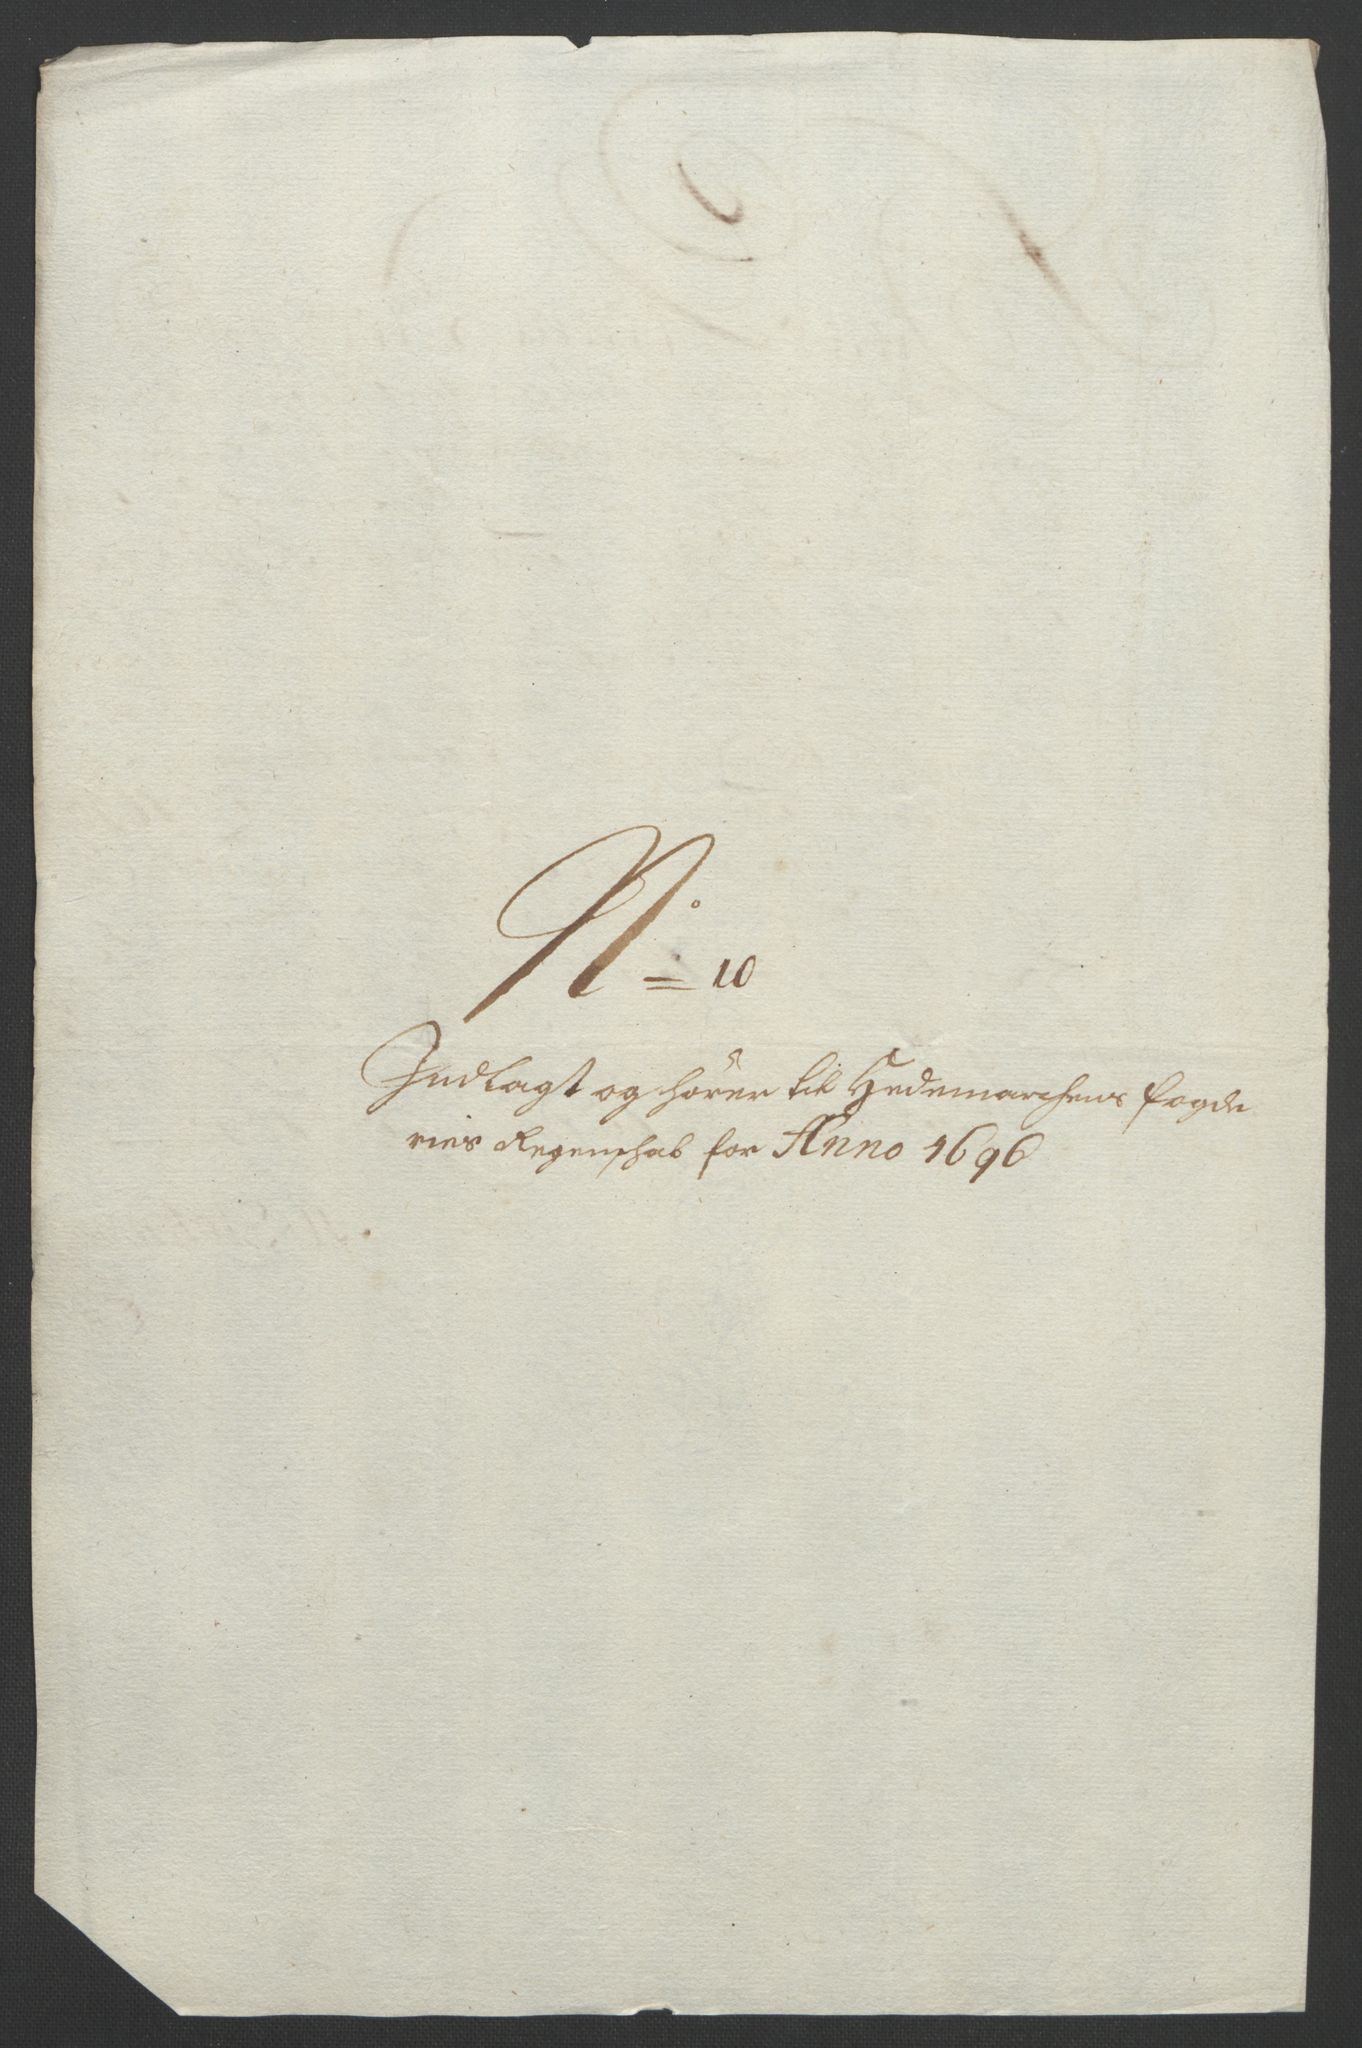 No = 10
Indlagt og hörer til Hedemarchens fogde
ries Regenschab for Anno 1696